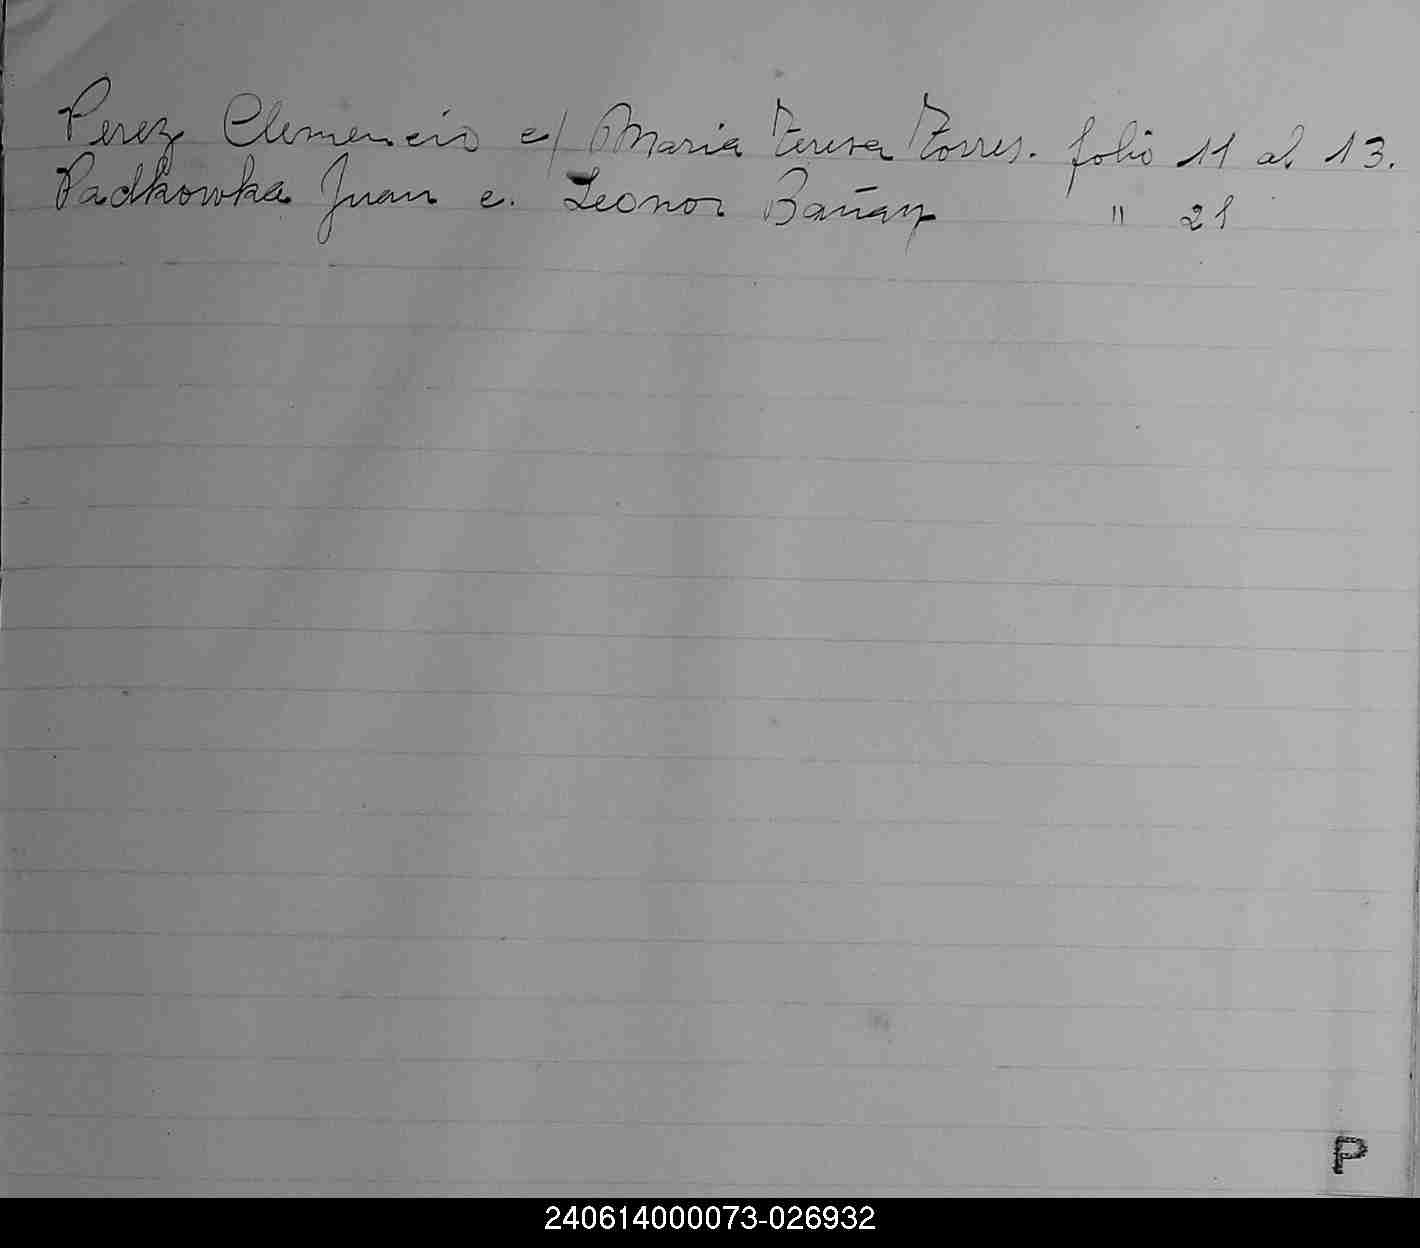 Perez Clemencio c/ Maria Teresa Torres. folio 11 al 13.
Padkowka Juan c. Leonor Bañay " 21
P
240614000073-026932